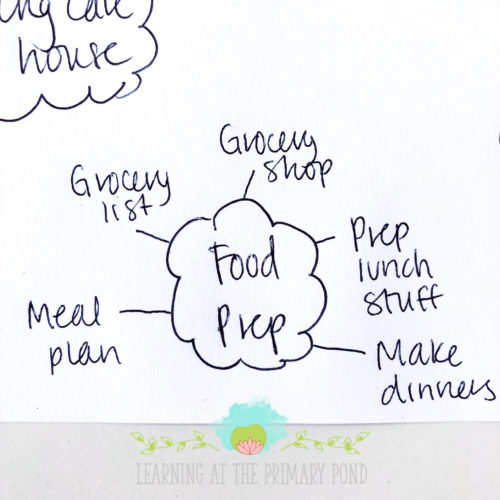 house
Grocery
shop
Grocery
list
Food
Prep
Prep
lunch
stuff
Meal
plan
Make
dinners
LEARNING AT THE PRIMARY POND